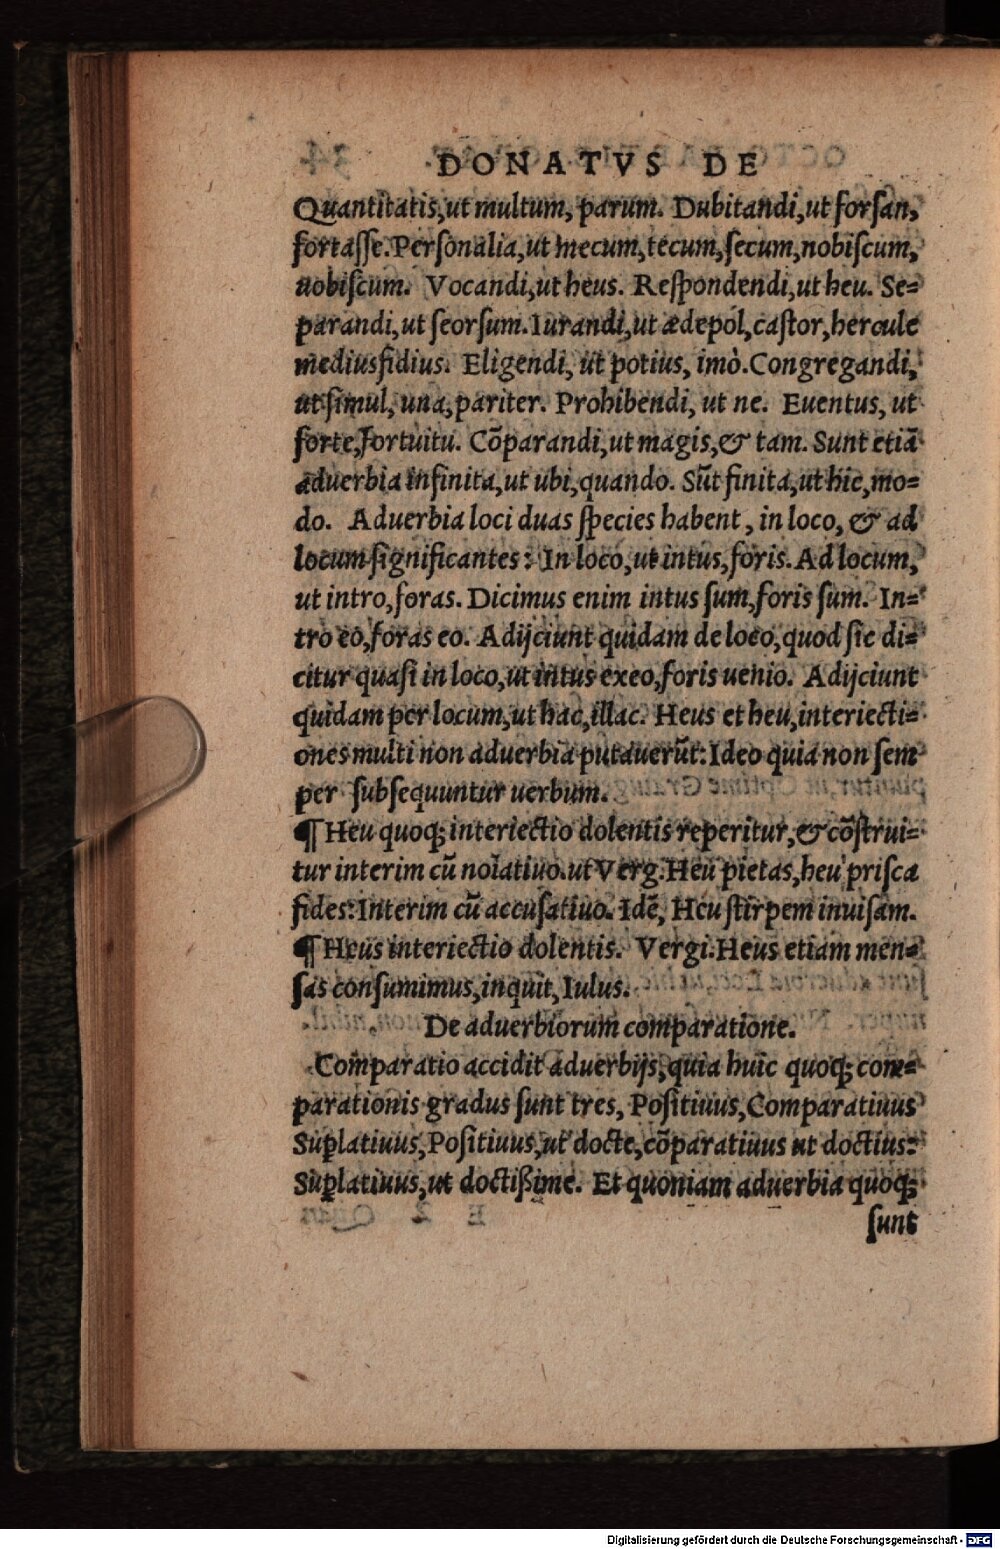 DONATVS DE
Quantitatis,ut multum, parum. Dubitandi,ut forſan,
fortaſſe.Perſonalia,ut mecum,tecum,ſecum,nobiſcum,
uobiſcum. Vocandi,ut heus. Reſpondendi,ut heu. Se=
parandi,ut ſeorſum.Iurandi,ut ædepol,caſtor,hercule
mediusfidius. Eligendi, ut potius, imò.Congregandi,
ut ſimul, una,pariter. Prohibendi, ut ne. Euentus, ut
forte,fortuitu. Cõparandi,ut magis,& tam. Sunt etiã
aduerbia infinita,ut ubi,quando. Sũt finita,ut hic,mo=
do. Aduerbia loci duas ſpecies habent, in loco, & ad
locum ſignificantes: In loco,ut intus,foris.Ad locum,
ut intro,foras. Dicimus enim intus ſum,foris ſum. In=
tro eo,foras eo. Adijciunt quidam de loco,quod ſic di=
citur quaſi in loco,ut intus exeo,foris uenio. Adijciunt
quidam per locum,ut hac,illac. Heus et heu,interiecti=
ones multi non aduerbia putauerũt:Ideo quia non ſem
per ſubſequuntur uerbum.
¶ Heu quoq; interiectio dolentis reperitur,& cõſtrui=
tur interim cũ noĩatiuo.ut Verg.Heu pietas,heu priſca
fides:Interim cũ accuſatiuo. Idẽ, Heu ſtirpem inuiſam.
¶ Heus interiectio dolentis. Vergi.Heus etiam men=
ſas conſumimus,inquit, Iulus.
De aduerbiorum comparatione.
Comparatio accidit aduerbijs,quia huic quoq; com=
parationis gradus ſunt tres, Poſitiuus,Comparatiuus
Suplatiuus,Poſitiuus,ut docte,cõparatiuus ut doctius:
Suplatiuus,ut doctißime. Et quoniam aduerbia quoq;
ſunt
Digitalisierung gefördert durch die Deutsche Forschungsgemeinschaft - DFG